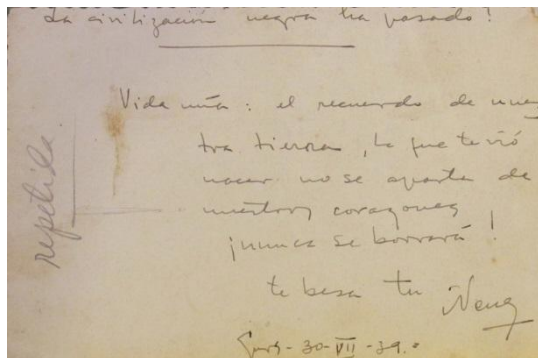 La civilización negra ha pasado!
Vida mía: el recuerdo de nues
tra tierra, la que te vió
nacer no se aparta de
nuestros corazones
¡nunca se borrará!
te besa tu Nena
Gurs-30-VII-39.
repetida.